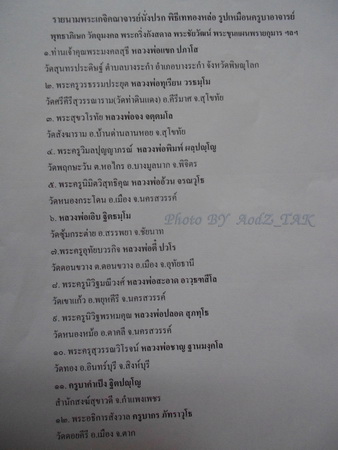 รายนามพระเกจิคณาจารย์นั่งปรก พิธีเททองหล่อ รูปเหมือนครูบาอาจารย์
พุทธาภิเษก วัตถุมงคล พระกริ่งกังสดาล พระชัยวัฒน์ พระขุนแผนพรายกุมาร ฯลฯ
๑.ท่านเจ้าคุณพระมงคลสุธี หลวงพ่อแขก ปภาโส
วัดสุนทรประดิษฐ์ ตำบลบางระกำ อำเภอบางระกำ จังหวัดพิษณุโลก
๒. พระครูวรธรรมประยุต หลวงพ่อทุเรียน วรธมฺโม
วัดศรีคีรีสุวรรณาราม(วัดท่าดินแดง) อ.คีรีมาศ จ.สุโขทัย
๓. พระสุขวโรทัย หลวงพ่อจง จตฺตมโล
วัดสังฆาราม อ.บ้านด่านลานหอย จ.สุโขทัย
๔. พระครูวิมลปุญญาภรณ์ หลวงพ่อพิมพ์ ผลปุญฺโญ
วัดพฤกษะวัน ต.หอไกร อ.บางมูลนาก จ.พิจิตร
๕. พระครูนิมิตวิสุทธิคุณ หลวงพ่ออ้วน จรณวุโธ
วัดหนองกระโดน อ.เมือง จ.นครสวรรค์
๖. หลวงพ่อเอิบ ฐิตธมฺโม
วัดซุ้มกระต่าย อ.สรรพยา จ.ชัยนาท
๗.พระครูอุทัยบวรกิจ หลวงพ่อตี๋ ปวโร
วัดดอนขวาง ต.ดอนขวาง อ.เมือง จ.อุทัยธานี
๘. พระครูนิวิฐมณีวงศ์ หลวงพ่อสะอาด อาวุธฑสีโล
วัดเขาแก้ว อ.พยุหคีรี จ.นครสวรรค์
๙. พระครูนิวิฐพรหมคุณ หลวงพ่อปลอด สุภทฺโธ
วัดหนองหม้อ อ.ตาคลี จ.นครสวรรค์
๑๐. พระครูสุวรรณวิโรจน์ หลวงพ่อชาญ ฐานมงฺคโล
วัดทอง อ.อินทร์บุรี จ.สิงห์บุรี
๑๑. ครูบาคำเป็ง ฐิตปญฺโญ
สำนักสงฆ์สุขาวดี จ.กำแพงเพชร
๑๒. พระอธิการสังวาล ครูบากร ภัทราวุโธ
วัดดอยคีรี อ.เมือง จ.ตาก
Photo BY AodZ_TAK